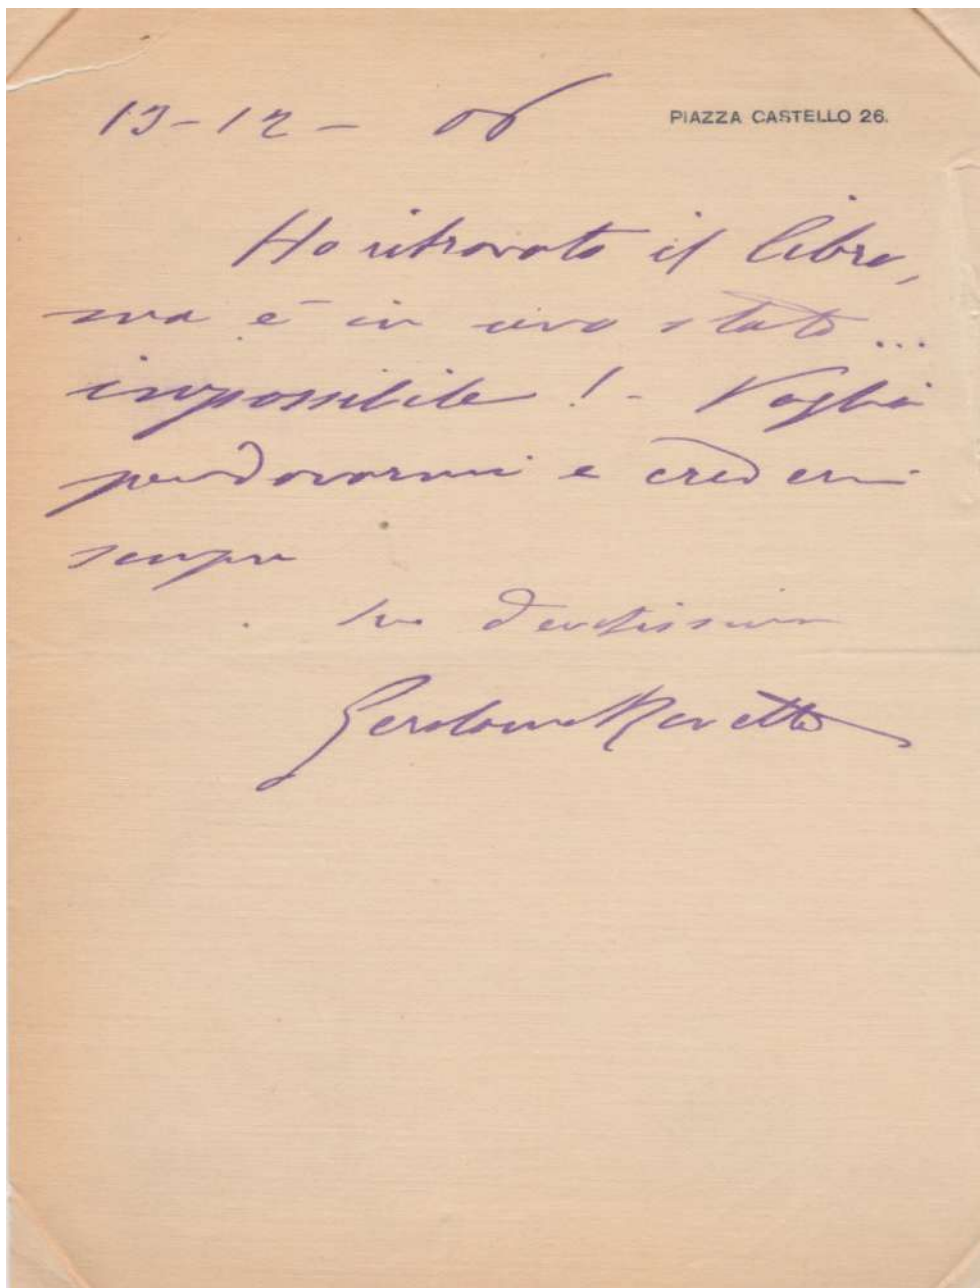 13-12-06
PIAZZA CASTELLO 26.
Ho ritrovato il libro,
ma è in uno stato...
impossibile! - Voglia
perdonarmi e credermi
sempre
suo devotissimo
Gerolamo Rovetta